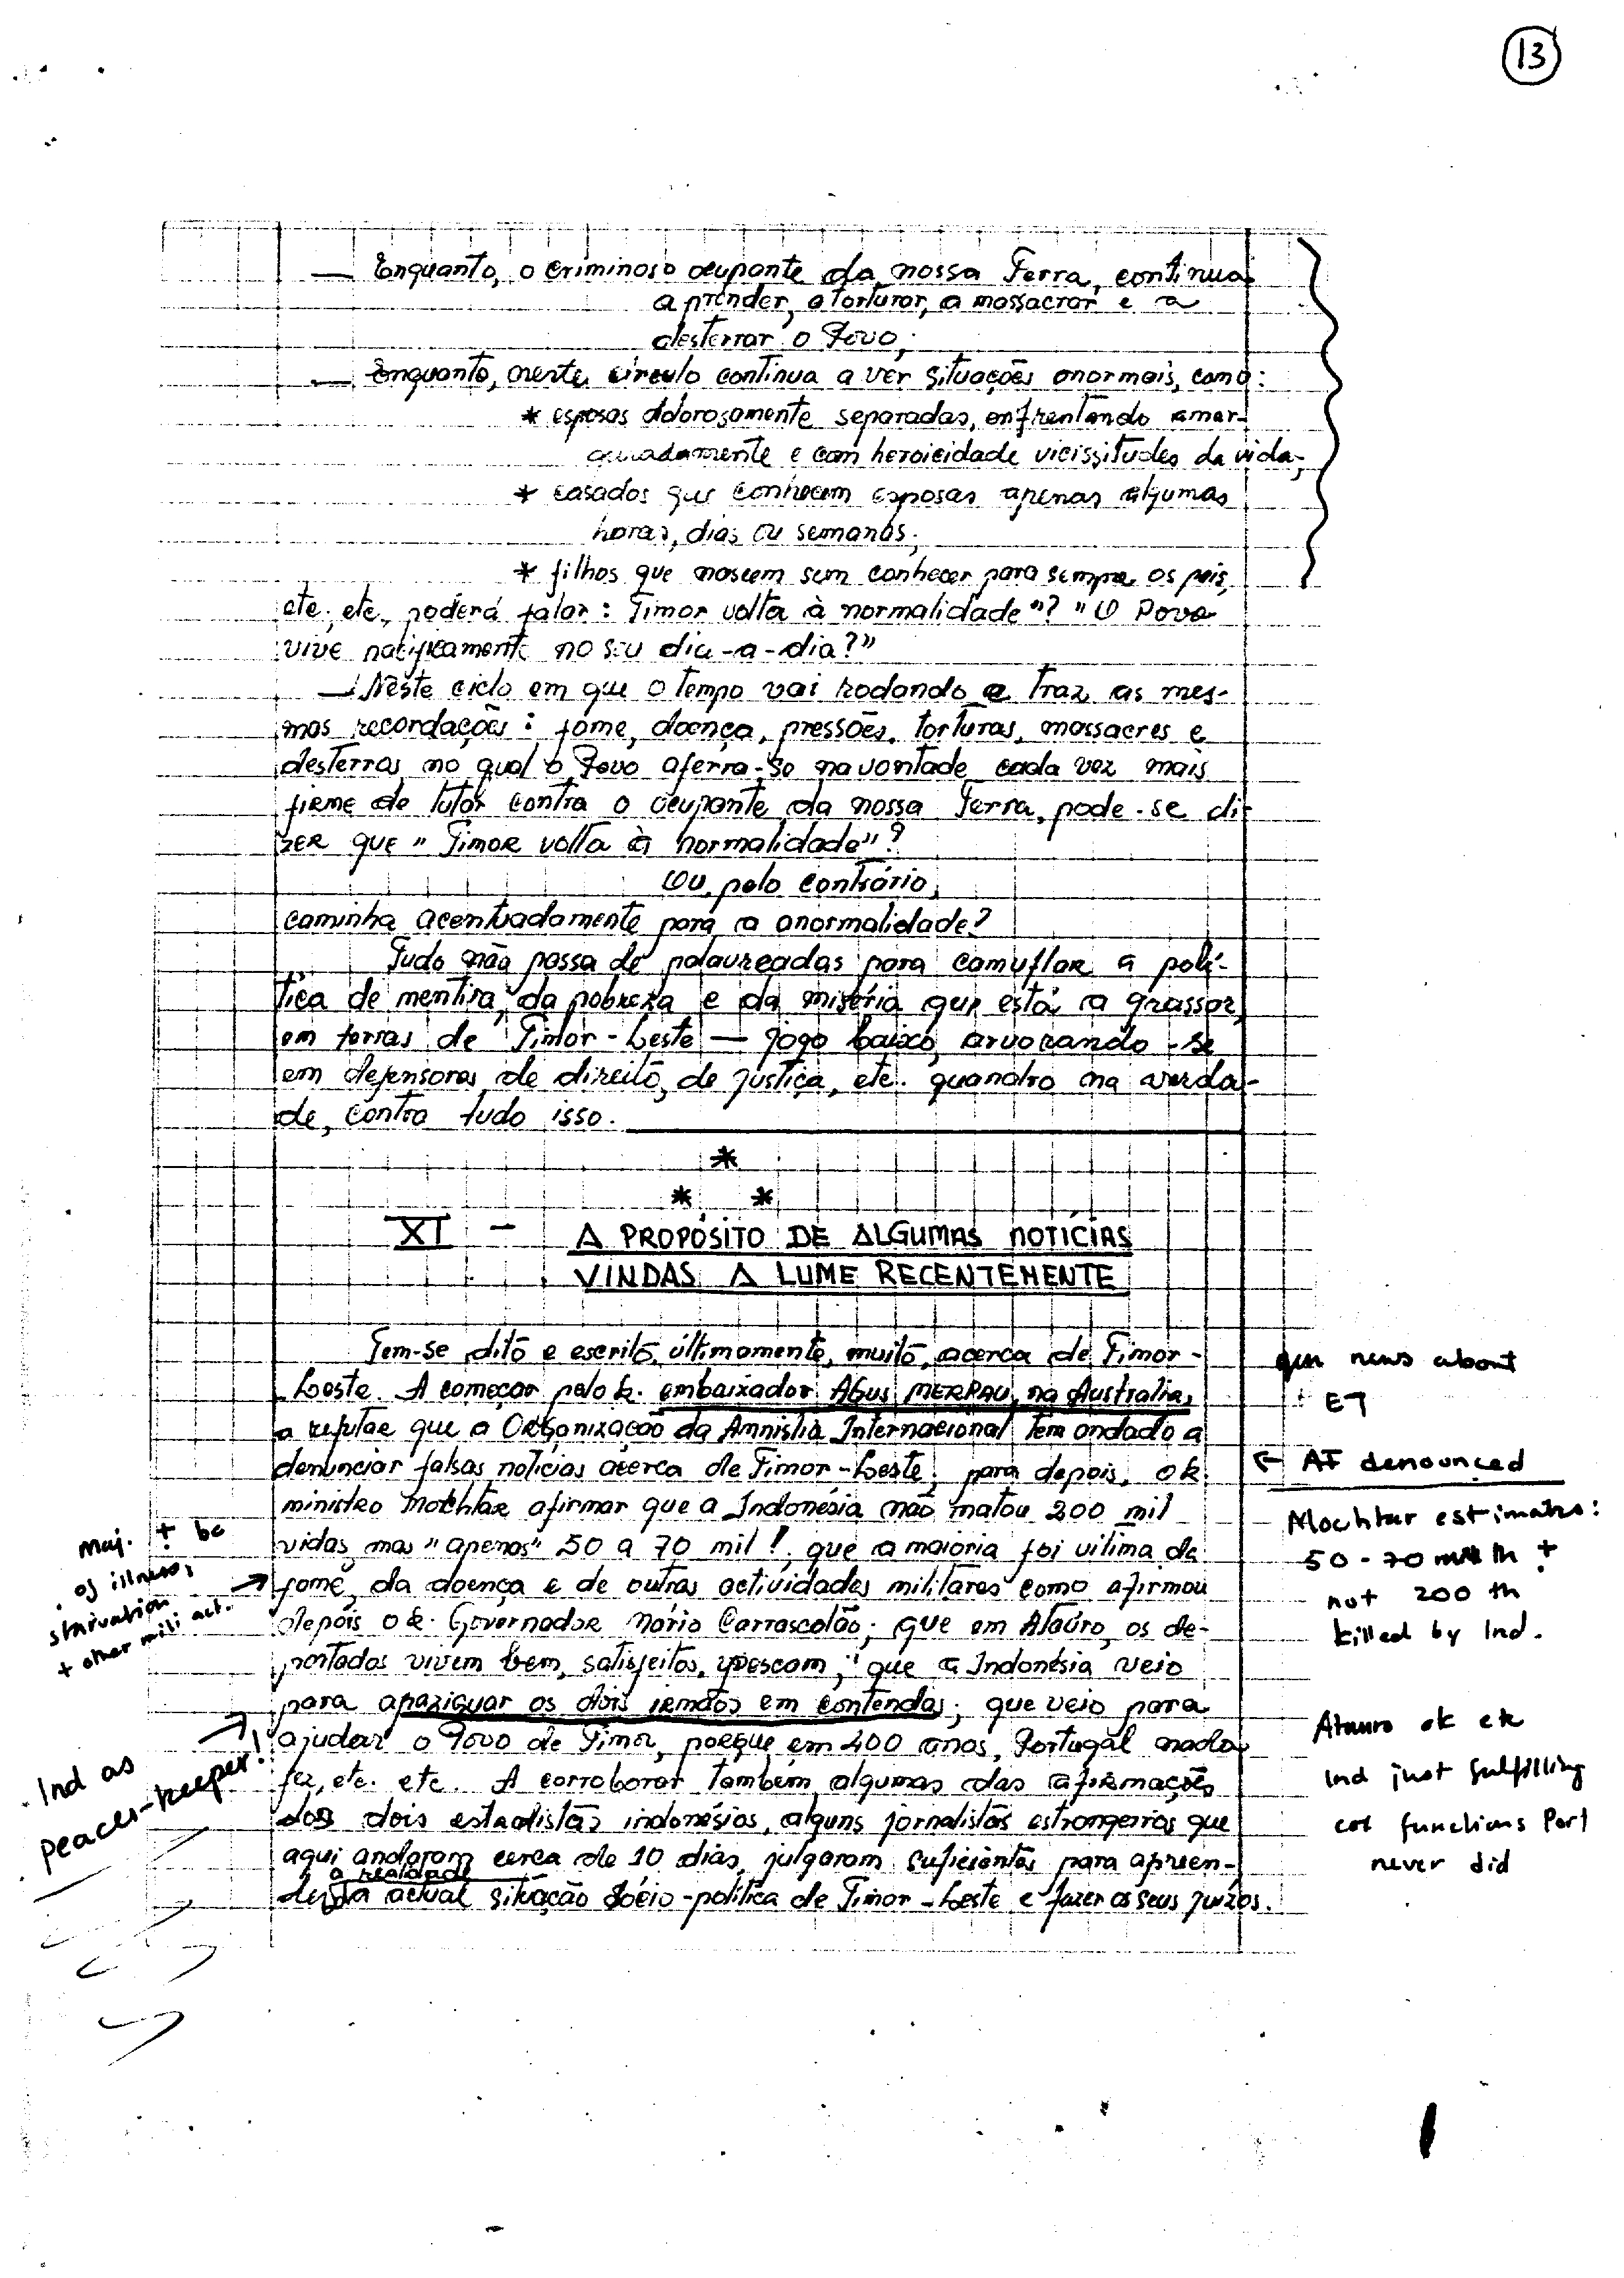 13
— Enquanto, o criminoso ocupante da nossa Terra, continua
a prender, a torturar, a massacrar e a
desterrar o Povo;
— Enquanto, neste círculo continua a ver situações anormais, como:
* esposas dolorosamente separadas, enfrentando amar-
guradamente e com heroicidade vicissitudes da vida;
* casados que conhecem esposas apenas algumas
horas, dias ou semanas;
* filhos que nascem sem conhecer para sempre os pais,
etc, etc, poderá falar: Timor volta à normalidade"? "O Povo
vive pacificamente no seu dia-a-dia?"
— Neste ciclo em que o tempo vai rodando e traz as mes-
mas recordações: fome, doença, pressões, torturas, massacres e
desterros, no qual o Povo aferra-se na vontade cada vez mais
firme de lutar contra o ocupante da nossa Terra, pode-se di-
zer que "Timor volta à normalidade"?
Ou, pelo contrário,
caminha acentuadamente para a anormalidade?
Tudo não passa de palavreadas para camuflar a polí-
tica de mentira, da pobreza e da miséria que está a grassar
em terras de Timor-Leste — jogo baixo, arvorando-se
em defensores de direito, de justiça, etc. quando na verda-
de, contra tudo isso.
*
* *
XI - A PROPÓSITO DE ALGUMAS NOTÍCIAS
VINDAS A LUME RECENTEMENTE
Tem-se dito e escrito, últimamente, muito, acerca de Timor-
Leste. A começar pelo Sr. embaixador AGUS MERPAU, na Australia,
a refutar que a Organização da Amnistia Internacional tem andado a
denunciar falsas notícias acerca de Timor-Leste; para depois, o Sr.
ministro Mochtar afirmar que a Indonésia não matou 200 mil
vidas, mas "apenas" 50 a 70 mil!, que a maioria foi vítima da
fome, da doença e de outras actividades militares como afirmou
depois o Sr. Governador Mário Carrascalão; que em Ataúro, os de-
portados vivem bem, satisfeitos, pescam; que a Indonésia veio
para apaziguar os dois irmãos em contendas; que veio para
ajudar o Povo de Timor, porque em 400 anos, Portugal nada
fez, etc. etc. A corroborar também algumas das afirmações
dos dois estadistas indonésios, alguns jornalistas estrangeiros que
aqui andaram cerca de 10 dias, julgaram suficientes para apreen-
a realidade
der da actual situação sócio-política de Timor-Leste e fazer os seus juízos.
gen news about
ET
← AI denounced
Mochtar estimates:
50-70 th
not 200 th
killed by Ind.
Atauro ok etc
Ind just fulfilling
col functions Port
never did
maj. be
of illness,
starvation
+ other mili act.
Ind as
peace-keeper!